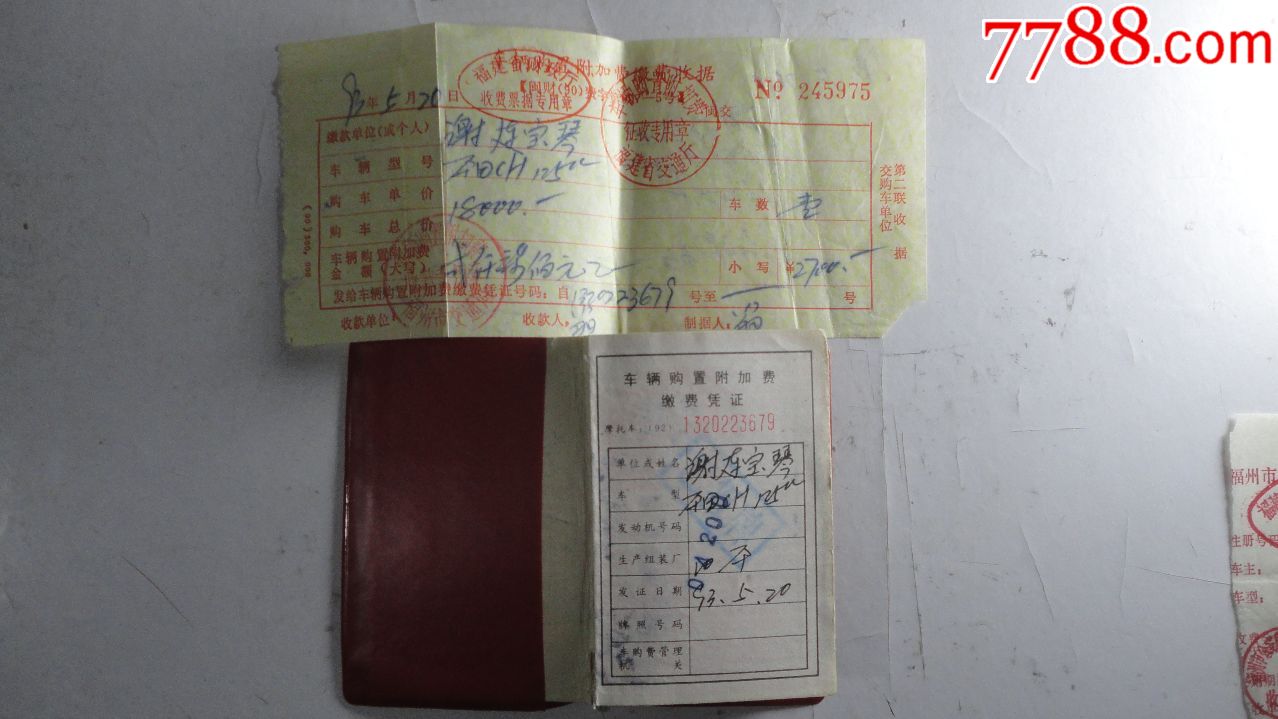 7788.com
车辆购置附加费缴费收据
福建省财政厅
收费票据专用章
征收专用章
福建省交通厅
№ 245975
93年5月20日
缴款单位(或个人) 谢连宝琴
车辆型号 本田CH 125cc
购车单价 18000.—
车数 壹
购车总价
车辆购置附加费
金额(大写)
小写 ¥2700.—
发给车辆购置附加费缴费凭证号码:自1320223679号至 号
收款单位: 收款人: 制据人:
第二联收据
交购车单位
车辆购置附加费
缴费凭证
摩托车:(92) 1320223679
单位或姓名 谢连宝琴
车型 本田CH 125cc
发动机号码
生产组装厂 日本
发证日期 93.5.20
牌照号码
车购费管理
机关
福州市
注册号
车主:
车型: